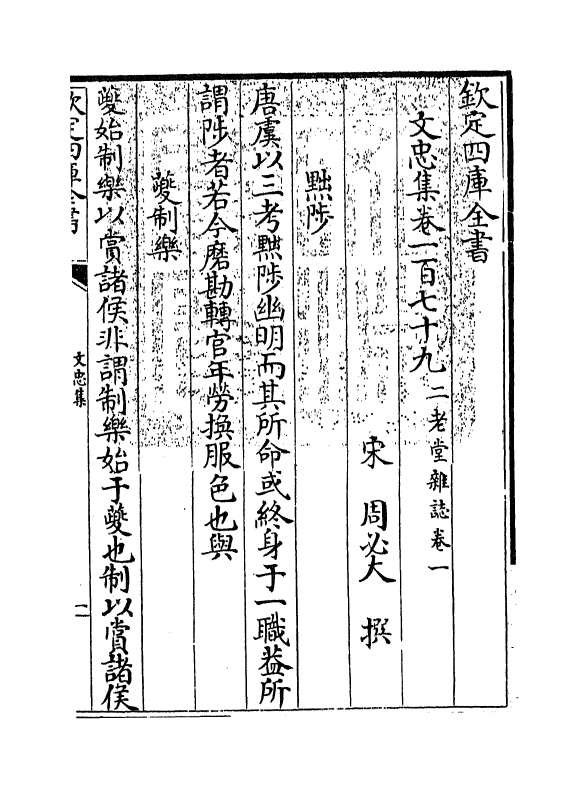 欽定四庫全書
文忠集卷一百七十九 二老堂雜誌卷一
宋 周必大 撰
黜陟
唐虞以三考黜陟幽明而其所命或終身于一職葢所
謂陟者若今磨勘轉官年勞換服色也與
夔制樂
夔始制樂以賞諸侯非謂制樂始于夔也制以賞諸侯
欽定四庫全書
文忠集
一